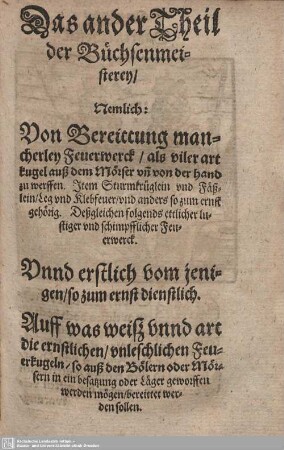 Das ander Theil
der Büchsenmei-
sterey/
Nemlich:
Von Bereittung man-
cherley Feuerwerck / als viler art
kugel auß dem Mörser vñ von der hand
zu werffen. Item Sturmkrüglein vnd Fäß-
lein/Leg vnd Klebfeuer/vnd anders so zum ernst
gehörig. Deßgleichen folgends ettlicher lu-
stiger vnd schimpfflicher Feu-
erwerck.
Vnnd erstlich vom jeni-
gen/so zum ernst dienstlich.
Auff was weiß vnnd art
die ernstlichen/ vnleschlichen Feu-
erkugeln/ so auß den Bölern oder Mör-
sern in ein besatzung oder Läger geworffen
werden mögen/bereittet wer-
den sollen.